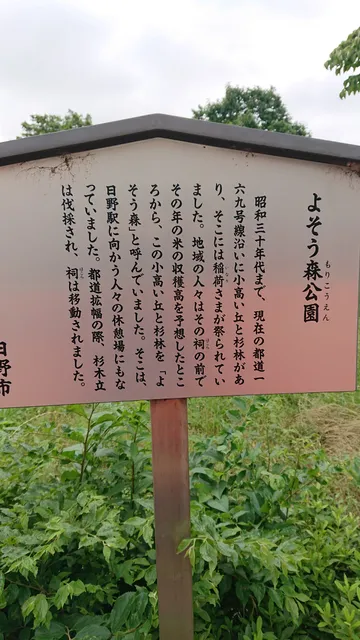 よそう森公園
もりこうえん
昭和三十年代まで、現在の都道一
六九号線沿いに小高い丘と杉林があ
り、そこには稲荷さまが祭られてい
ました。地域の人々はその祠の前で
その年の米の収穫高を予想したとこ
ろから、この小高い丘と杉林を「よ
そう森」と呼んでいました。そこは、
日野駅に向かう人々の休憩場にもな
っていました。都道拡幅の際、杉木立
は伐採され、祠は移動されました。
日野市